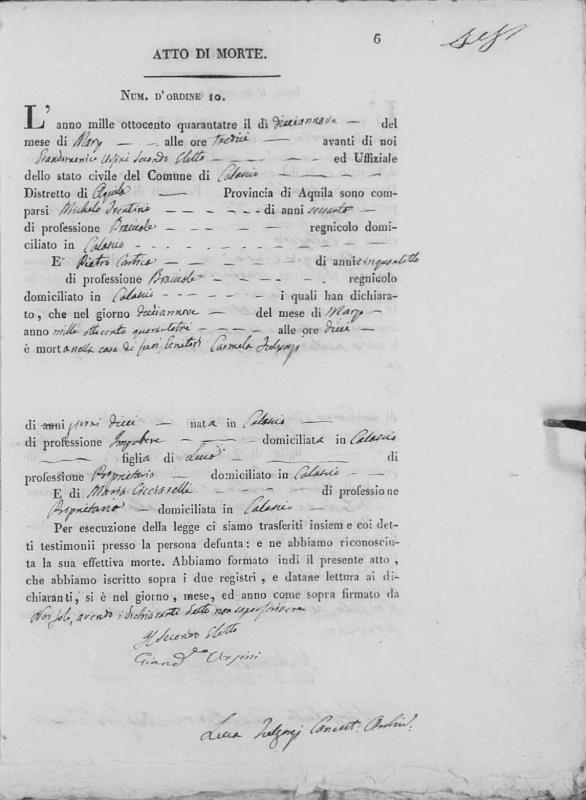 6
ATTO DI MORTE.
NUM. D'ORDINE 10.
L' anno mille ottocento quarantatre il dì diciannove del
mese di Marzo alle ore tredici avanti di noi
Giandomenico Ursini Secondo Eletto ed Uffiziale
dello stato civile del Comune di Calascio
Distretto di Aquila Provincia di Aquila sono com-
parsi Michele di anni sessanta
di professione Bracciale regnicolo domi-
ciliato in Calascio
E Pietro di anni cinquantotto
di professione Bracciale regnicolo
domiciliato in Calascio i quali han dichiara-
to, che nel giorno diciannove del mese di Marzo
anno mille ottocento quarantatri alle ore dieci
è morta nella casa di suoi Genitori Carmela
di anni giorni dieci nata in Calascio
di professione Impubere domiciliata in Calascio
figlia di Luca di
professione Proprietario domiciliato in Calascio
E di Maria Ciccarelli di professione
Proprietaria domiciliata in Calascio
Per esecuzione della legge ci siamo trasferiti insiem e coi det-
ti testimonii presso la persona defunta: e ne abbiamo riconosciu-
ta la sua effettiva morte. Abbiamo formato indi il presente atto,
che abbiamo iscritto sopra i due registri, e datane lettura ai di-
chiaranti, si è nel giorno, mese, ed anno come sopra firmato da
Noi solo, avendo i dichiaranti detto non saper scrivere
Il Secondo Eletto
Giand.co Ursini
Luca